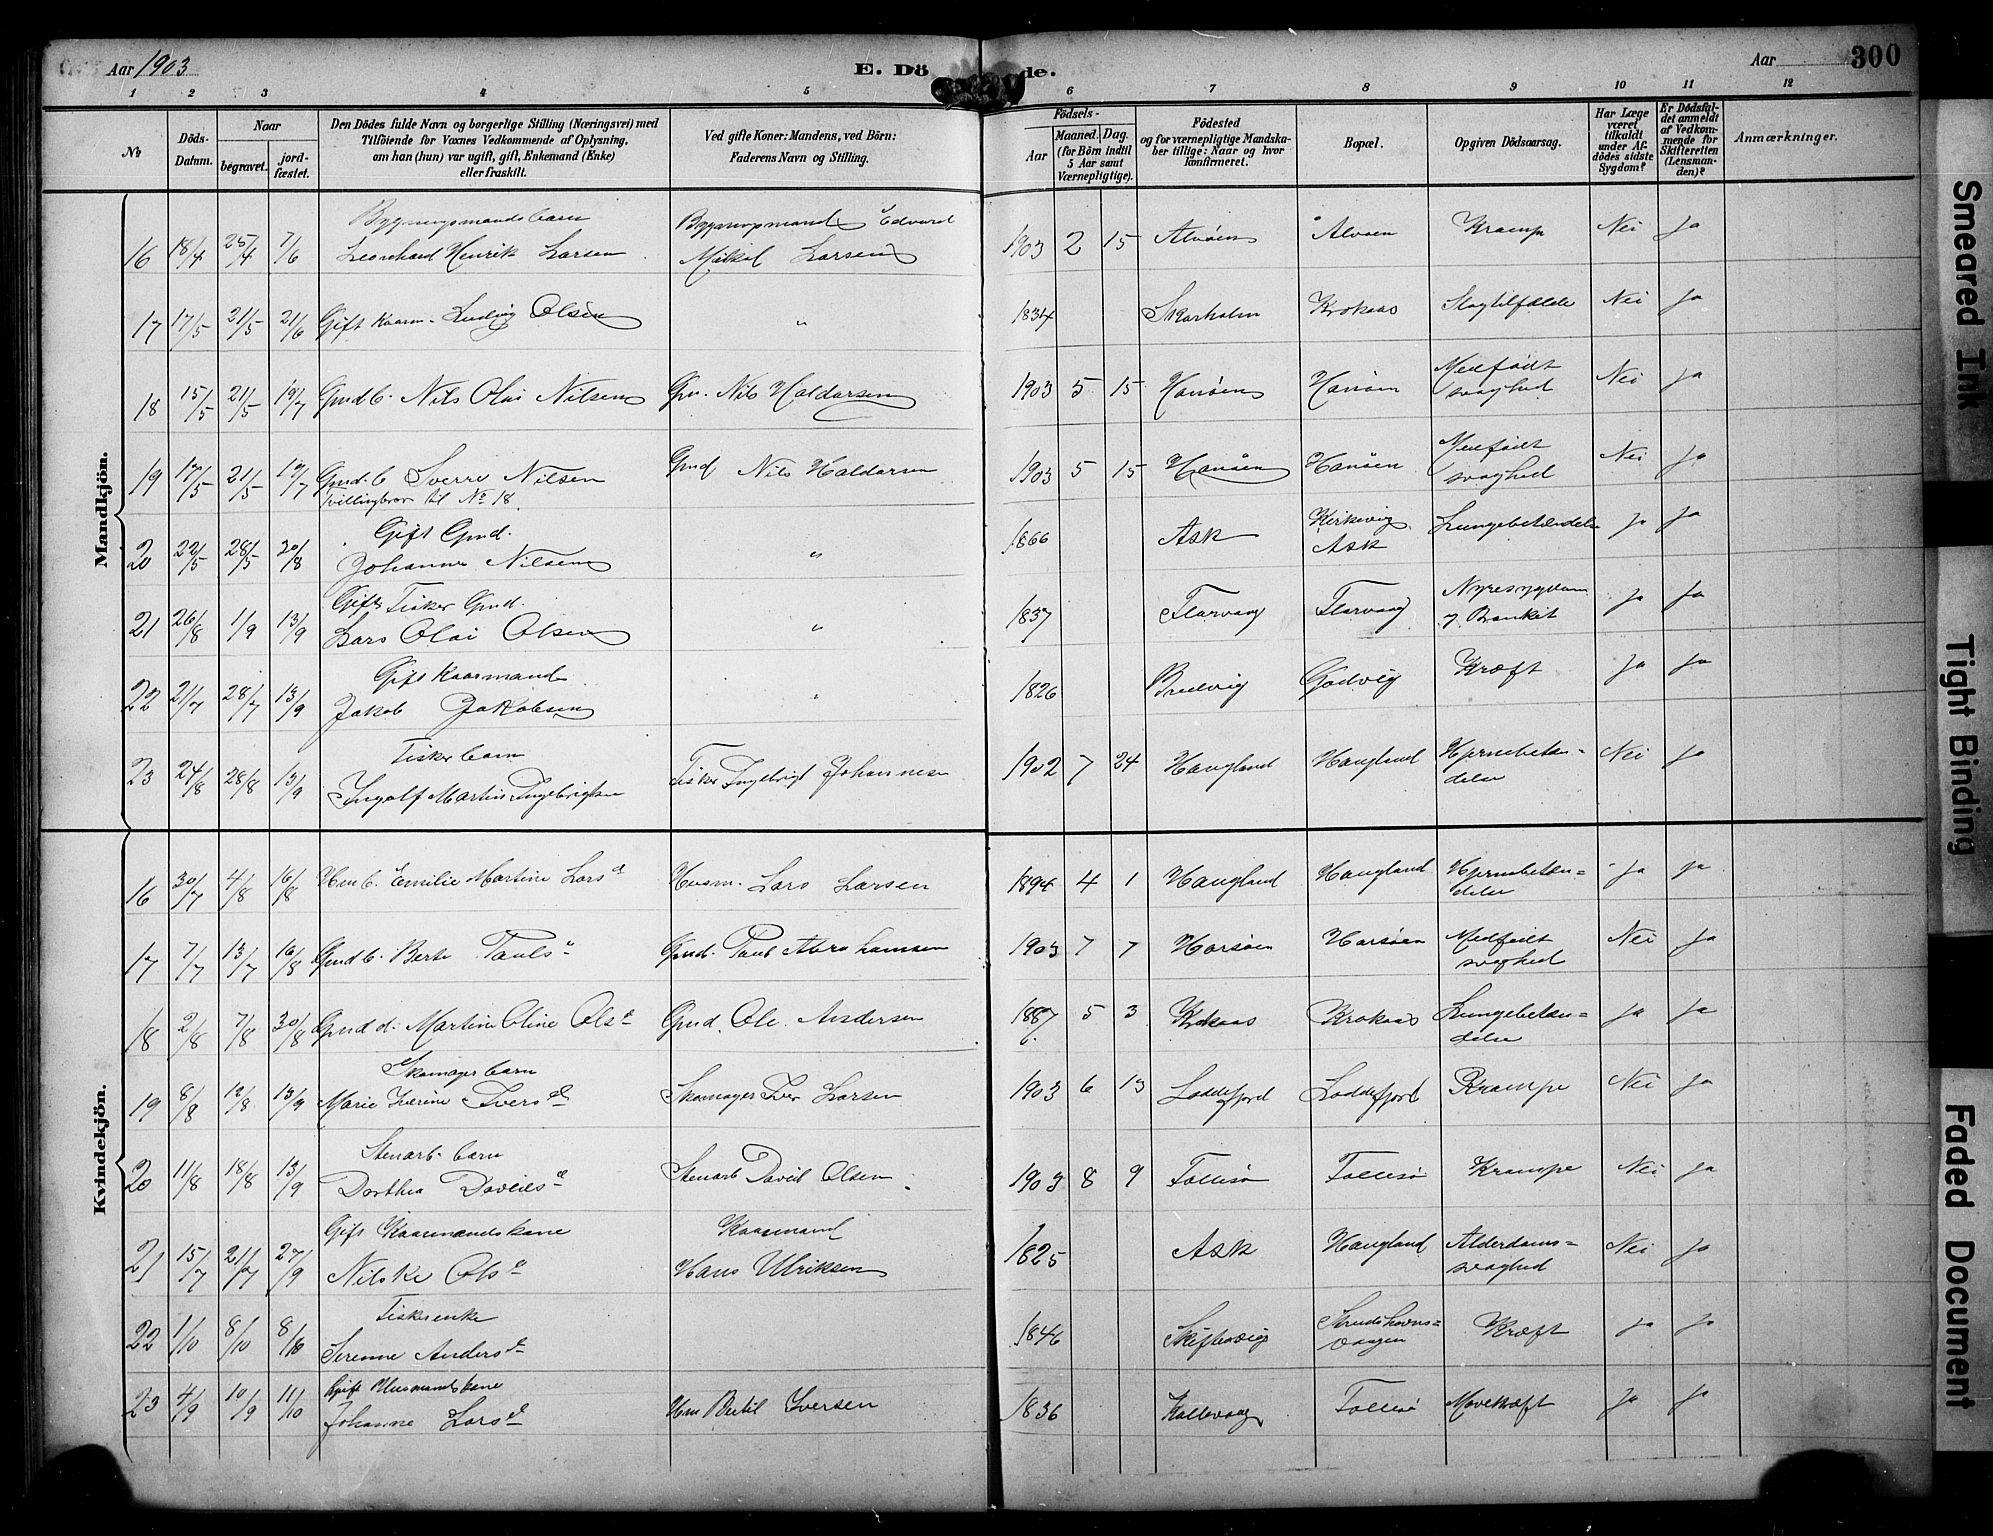 Aar 1903
E. Dö de.
Aar 300
1 2 3 4 5 6 7 8 9 10 11 12
№
Döds-Datum.
Naar
begravet.
jord-fæstet.
Den Dödes fulde Navn og borgerlige Stilling (Næringsvei) med
Tilföiende for Voxnes Vedkommende af Oplysning,
om han (hun) var ugift, gift, Enkemand (Enke)
eller fraskilt.
Ved gifte Koner: Mandens, ved Börn:
Faderens Navn og Stilling.
Födsels-
Aar
Maaned. Dag.
(for Börn indtil
5 Aar samt
Værnepligtige).
Födested
og for værnepligtige Mandska-
ber tillige: Naar og hvor
konfirmeret.
Bopæl.
Opgiven Dödsaarsag.
Har Læge
været
tilkaldt
under Af-
dödes sidste
Sygdom?
Er Dödsfal-
det anmeldt
af Vedkom-
mende for
Skifteretten
(Lensman-
den)?
Anmærkninger.
Mandkjön.
Bygningsmandsbarn Bygningsmand Edvard
16 18/4 25/4 7/6 Leonhard Henrik Larsen Mikal Larsen 1903 2 15 Alvøen Alvøen Krampe Nei Ja
17 17/5 21/5 21/6 Gift Kaarm. Ludvig Olsen " 1834 Skarholm Krokaas Slagtilfælde Nei Ja
18 15/5 21/5 19/7 Gmd b. Nils Olai Nilsen Gm. Nils Haldorsen 1903 5 15 Hanøen Hanøen Medfødt svaghed Nei Ja
19 17/5 21/5 19/7 Gmd. b Sverre Nilsen Gmd Nils Haldorsen 1903 5 15 Hanøen Hanøen Medfødt svaghed Nei Ja
Tvillingbror til No 18.
Gift Gmd.
20 22/5 28/5 30/8 Johannes Nilsen " 1866 Ask Kirkevig Ask Lungebetændelse Ja Ja
Gift Fisker Gmd.
21 26/8 1/9 13/9 Lars Olai Olsen " 1837 Florvaag Florvaag Nyresygdom og Bronkit Ja Ja
Gift Kaarmand
22 21/7 28/7 13/9 Jakob Jakobsen " 1826 Bredvig Godvig Kræft Ja Ja
Fisker barn
23 24/8 28/8 13/9 Ingolf Martin Ingebrigtsen Fisker Ingebrigt Johannesen 1902 7 24 Haugland Haugland Hjernebetæn=delse Nei Ja
Kvindekjön.
16 30/7 4/8 16/8 Hm b. Emilie Martine Larsd Husm. Lars Larsen 1894 4 1 Haugland Haugland Hjernebetæn=delse Ja Ja
17 7/7 13/7 16/8 Gmd b. Berte Pauls d Gmd. Paul Abrahamsen 1903 7 7 Horsøen Horsøen Medfødt svaghed Nei Ja
18 2/8 7/8 30/8 Gmd d. Martine Oline Ols d Gmd. Ole Andersen 1887 5 3 Krokaas Krokaas Lungebetæn=delse Ja Ja
Skomager barn
19 8/8 12/8 13/9 Marie Iverine Ivers d Skomager Iver Larsen 1903 6 13 Loddefjord Loddefjord Krampe Nei Ja
Stenarb. barn
20 11/8 18/8 13/9 Dorthea Davids d Stenarb David Olsen 1903 8 9 Follesø Follesø Krampe Nei Ja
Gift Kaarmandskone Kaarmand
21 15/7 21/7 27/9 Nilske Ols d Hans Ulriksen 1825 Ask Haugland Alderdoms=svaghed Nei Ja
Fiskerenke
22 1/10 8/10 8/10 Serenne Anders d 1846 Skiftesvig Strudshavns=vaagen Kræft Ja Ja
Gift Husmandskone
23 4/9 10/9 11/10 Johanne Lars d Hm Bertil Iversen 1836 Kollevaag Follesø Mavekræft Ja Ja
Smeared Ink
Tight Binding
Faded Document